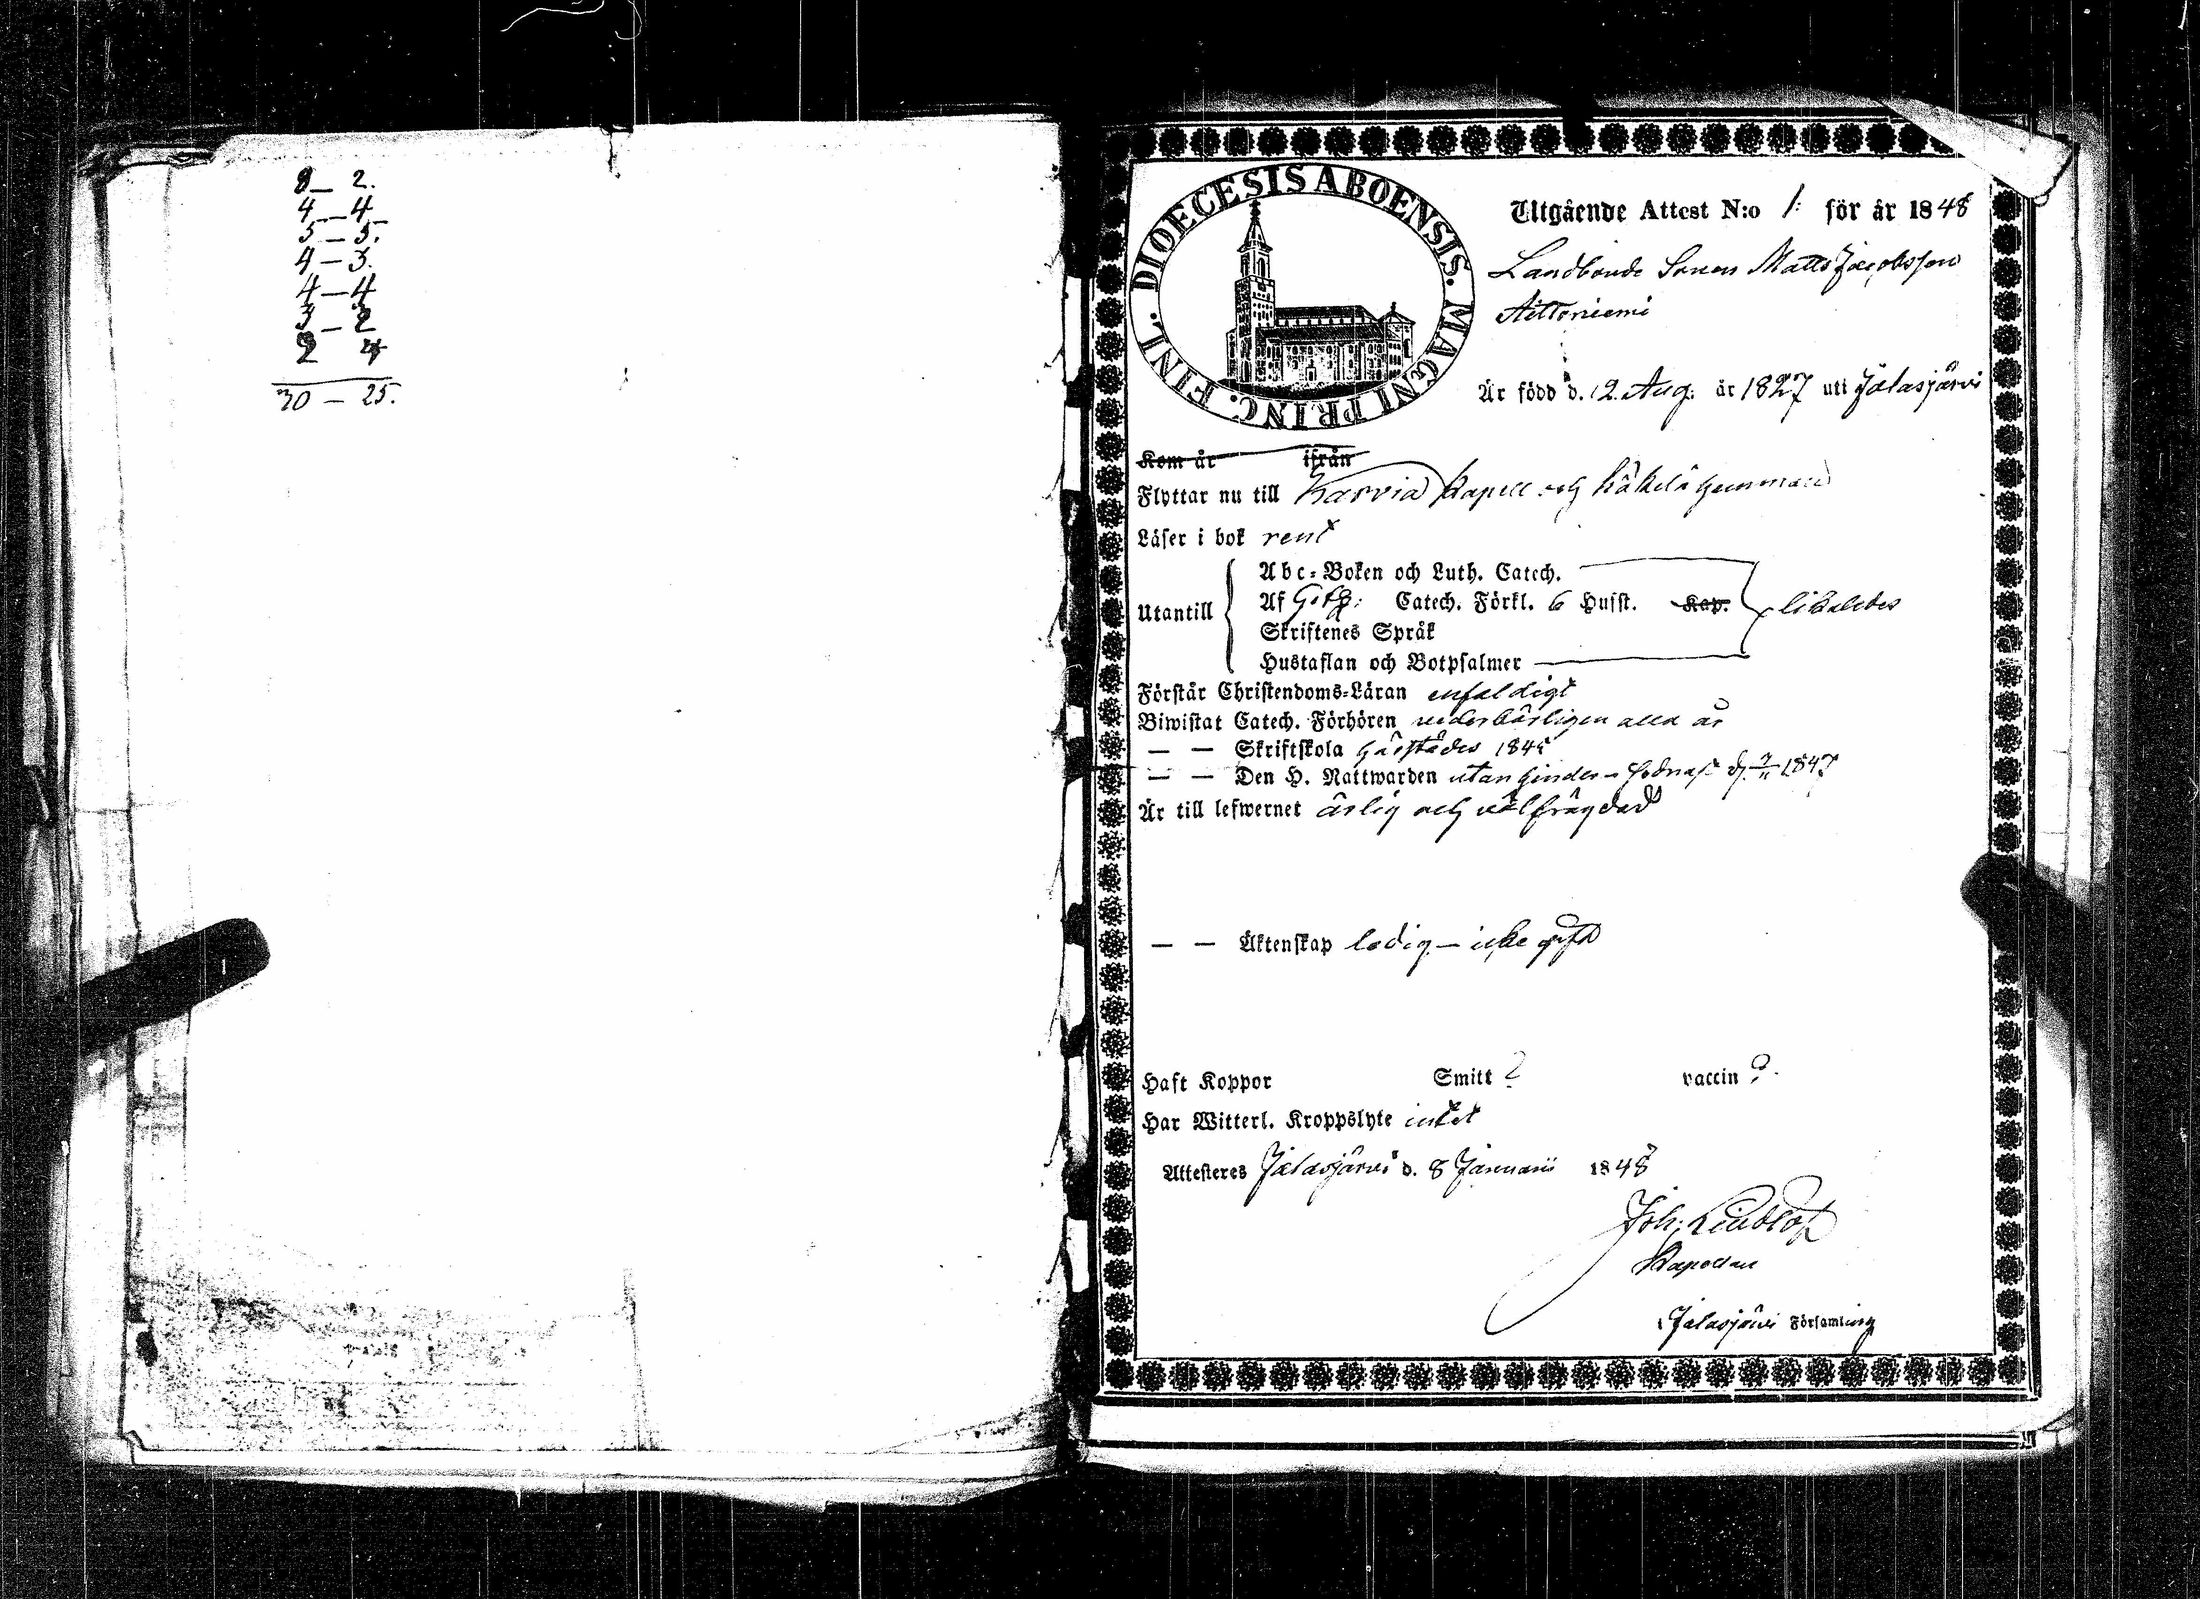 8 — 2.
4 — 4
5 — 5.
4 — 3.
4 — 4
3 — 2
2 4
30 — 25.
DIOECESIS ABOENSIS. MAGNI PRINC. FINL.
Utgående Attest N:o 1: för år 1848
Landbonde Sonen Matts Jacobsson
Aittoniemi
Är född d. 12. Aug. år 1827 uti Jalasjärvi
Kom år ifrån
Flyttar nu till Karvia Kapell och hemman
Läser i bok rent
Utantill
Abc-Boken och Luth. Catech.
Af Catech. Förkl. 6 Hufst. Kap. likaledes
Skriftenes Språk
Hustaflan och Botpsalmer
Förstår Christendoms-Läran enfaldigt
Biwistat Catech. Förhören vederbörligen alla år
— — Skriftskola härstädes 184
— — Den H. Nattwarden utan hinder 1847
Är till lefwernet ärlig och välfrägdad
— — Äktenskap ledig – icke gift
Haft Koppor Smitt ? vaccin ?
Har Witterl. Kroppslyte intet
Attesteres Jalasjärvi d. 8 Januarii 1848
Joh: Lindlöf
Kapellan
i Jalasjärvi Församling